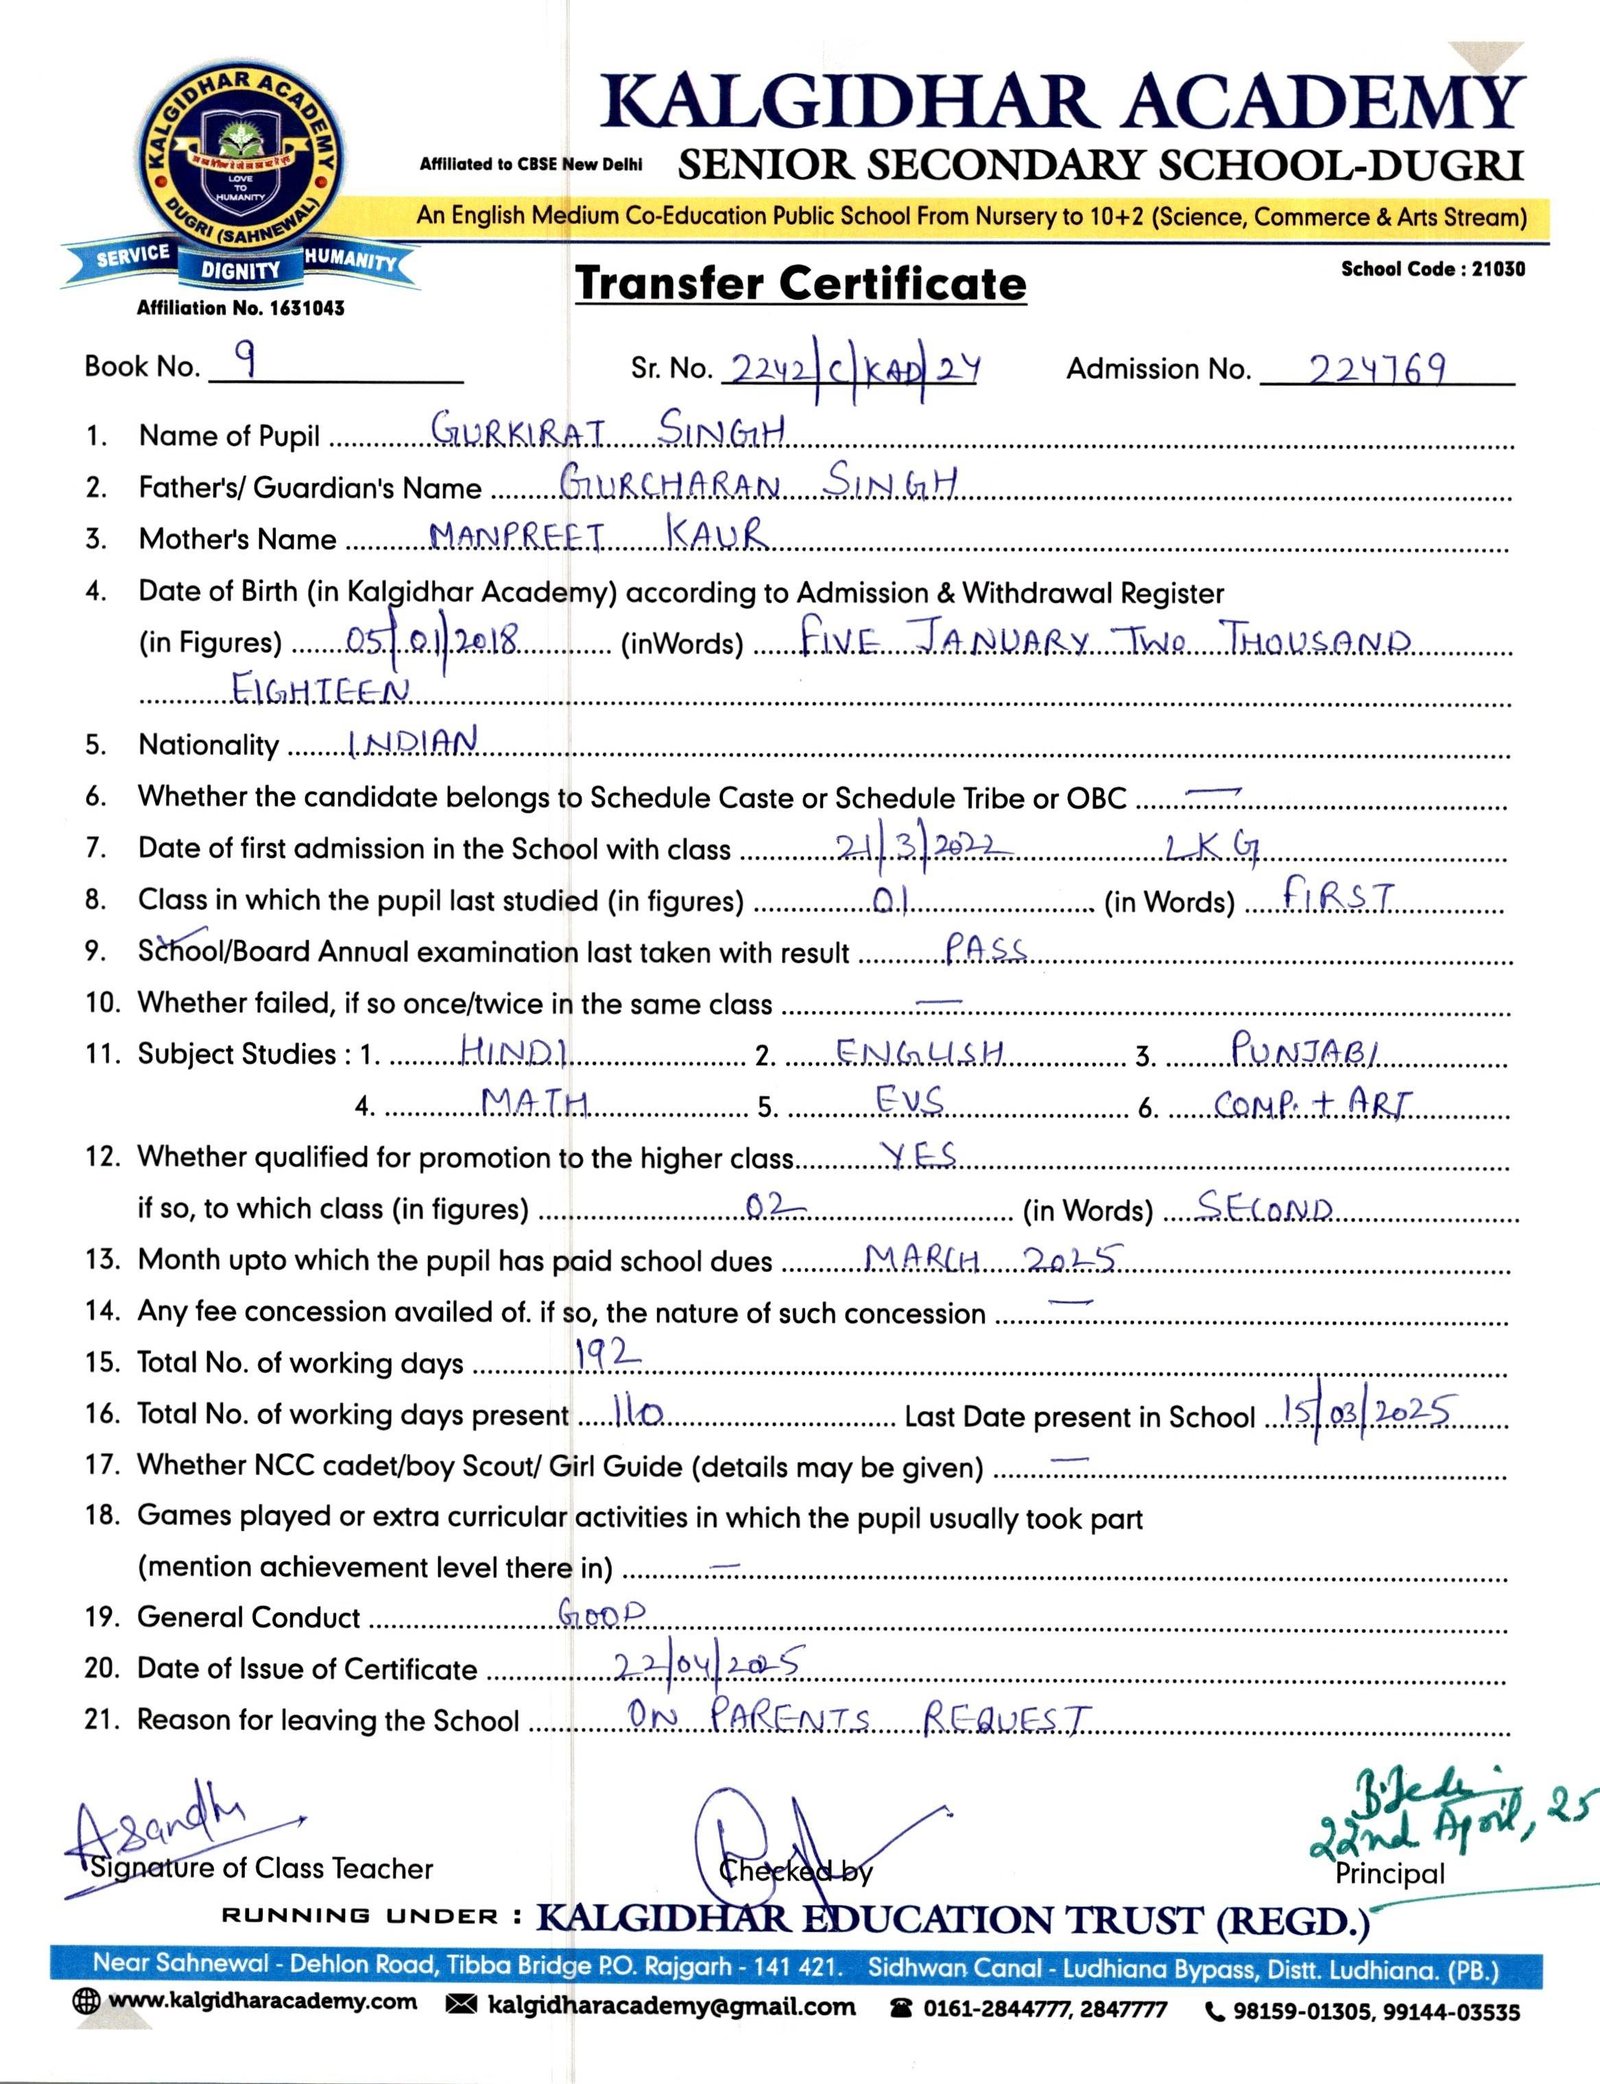 KALGIDHAR ACADEMY
DUGRI (SAHNEWAL)
LOVE
TO
HUMANITY
SERVICE DIGNITY HUMANITY
Affiliation No. 1631043
KALGIDHAR ACADEMY
Affiliated to CBSE New Delhi SENIOR SECONDARY SCHOOL-DUGRI
An English Medium Co-Education Public School From Nursery to 10+2 (Science, Commerce & Arts Stream)
Transfer Certificate
School Code : 21030
Book No. 9 Sr. No. 2242/C/KAD/24 Admission No. 224769
1. Name of Pupil GURKIRAT SINGH
2. Father's/ Guardian's Name GURCHARAN SINGH
3. Mother's Name MANPREET KAUR
4. Date of Birth (in Kalgidhar Academy) according to Admission & Withdrawal Register
(in Figures) 05/01/2018 (inWords) FIVE JANUARY TWO THOUSAND
EIGHTEEN
5. Nationality INDIAN
6. Whether the candidate belongs to Schedule Caste or Schedule Tribe or OBC —
7. Date of first admission in the School with class 21/3/2022 LKG
8. Class in which the pupil last studied (in figures) 01 (in Words) FIRST
9. School/Board Annual examination last taken with result PASS
10. Whether failed, if so once/twice in the same class —
11. Subject Studies : 1. HINDI 2. ENGLISH 3. PUNJABI
4. MATH 5. EVS 6. COMP. + ART
12. Whether qualified for promotion to the higher class YES
if so, to which class (in figures) 02 (in Words) SECOND
13. Month upto which the pupil has paid school dues MARCH 2025
14. Any fee concession availed of. if so, the nature of such concession —
15. Total No. of working days 192
16. Total No. of working days present 110 Last Date present in School 15/03/2025
17. Whether NCC cadet/boy Scout/ Girl Guide (details may be given) —
18. Games played or extra curricular activities in which the pupil usually took part
(mention achievement level there in) —
19. General Conduct GOOD
20. Date of Issue of Certificate 22/04/2025
21. Reason for leaving the School ON PARENTS REQUEST
Asandhu
22nd April, 25
Signature of Class Teacher Checked by Principal
RUNNING UNDER : KALGIDHAR EDUCATION TRUST (REGD.)
Near Sahnewal - Dehlon Road, Tibba Bridge P.O. Rajgarh - 141 421. Sidhwan Canal - Ludhiana Bypass, Distt. Ludhiana. (PB.)
www.kalgidharacademy.com kalgidharacademy@gmail.com 0161-2844777, 2847777 98159-01305, 99144-03535